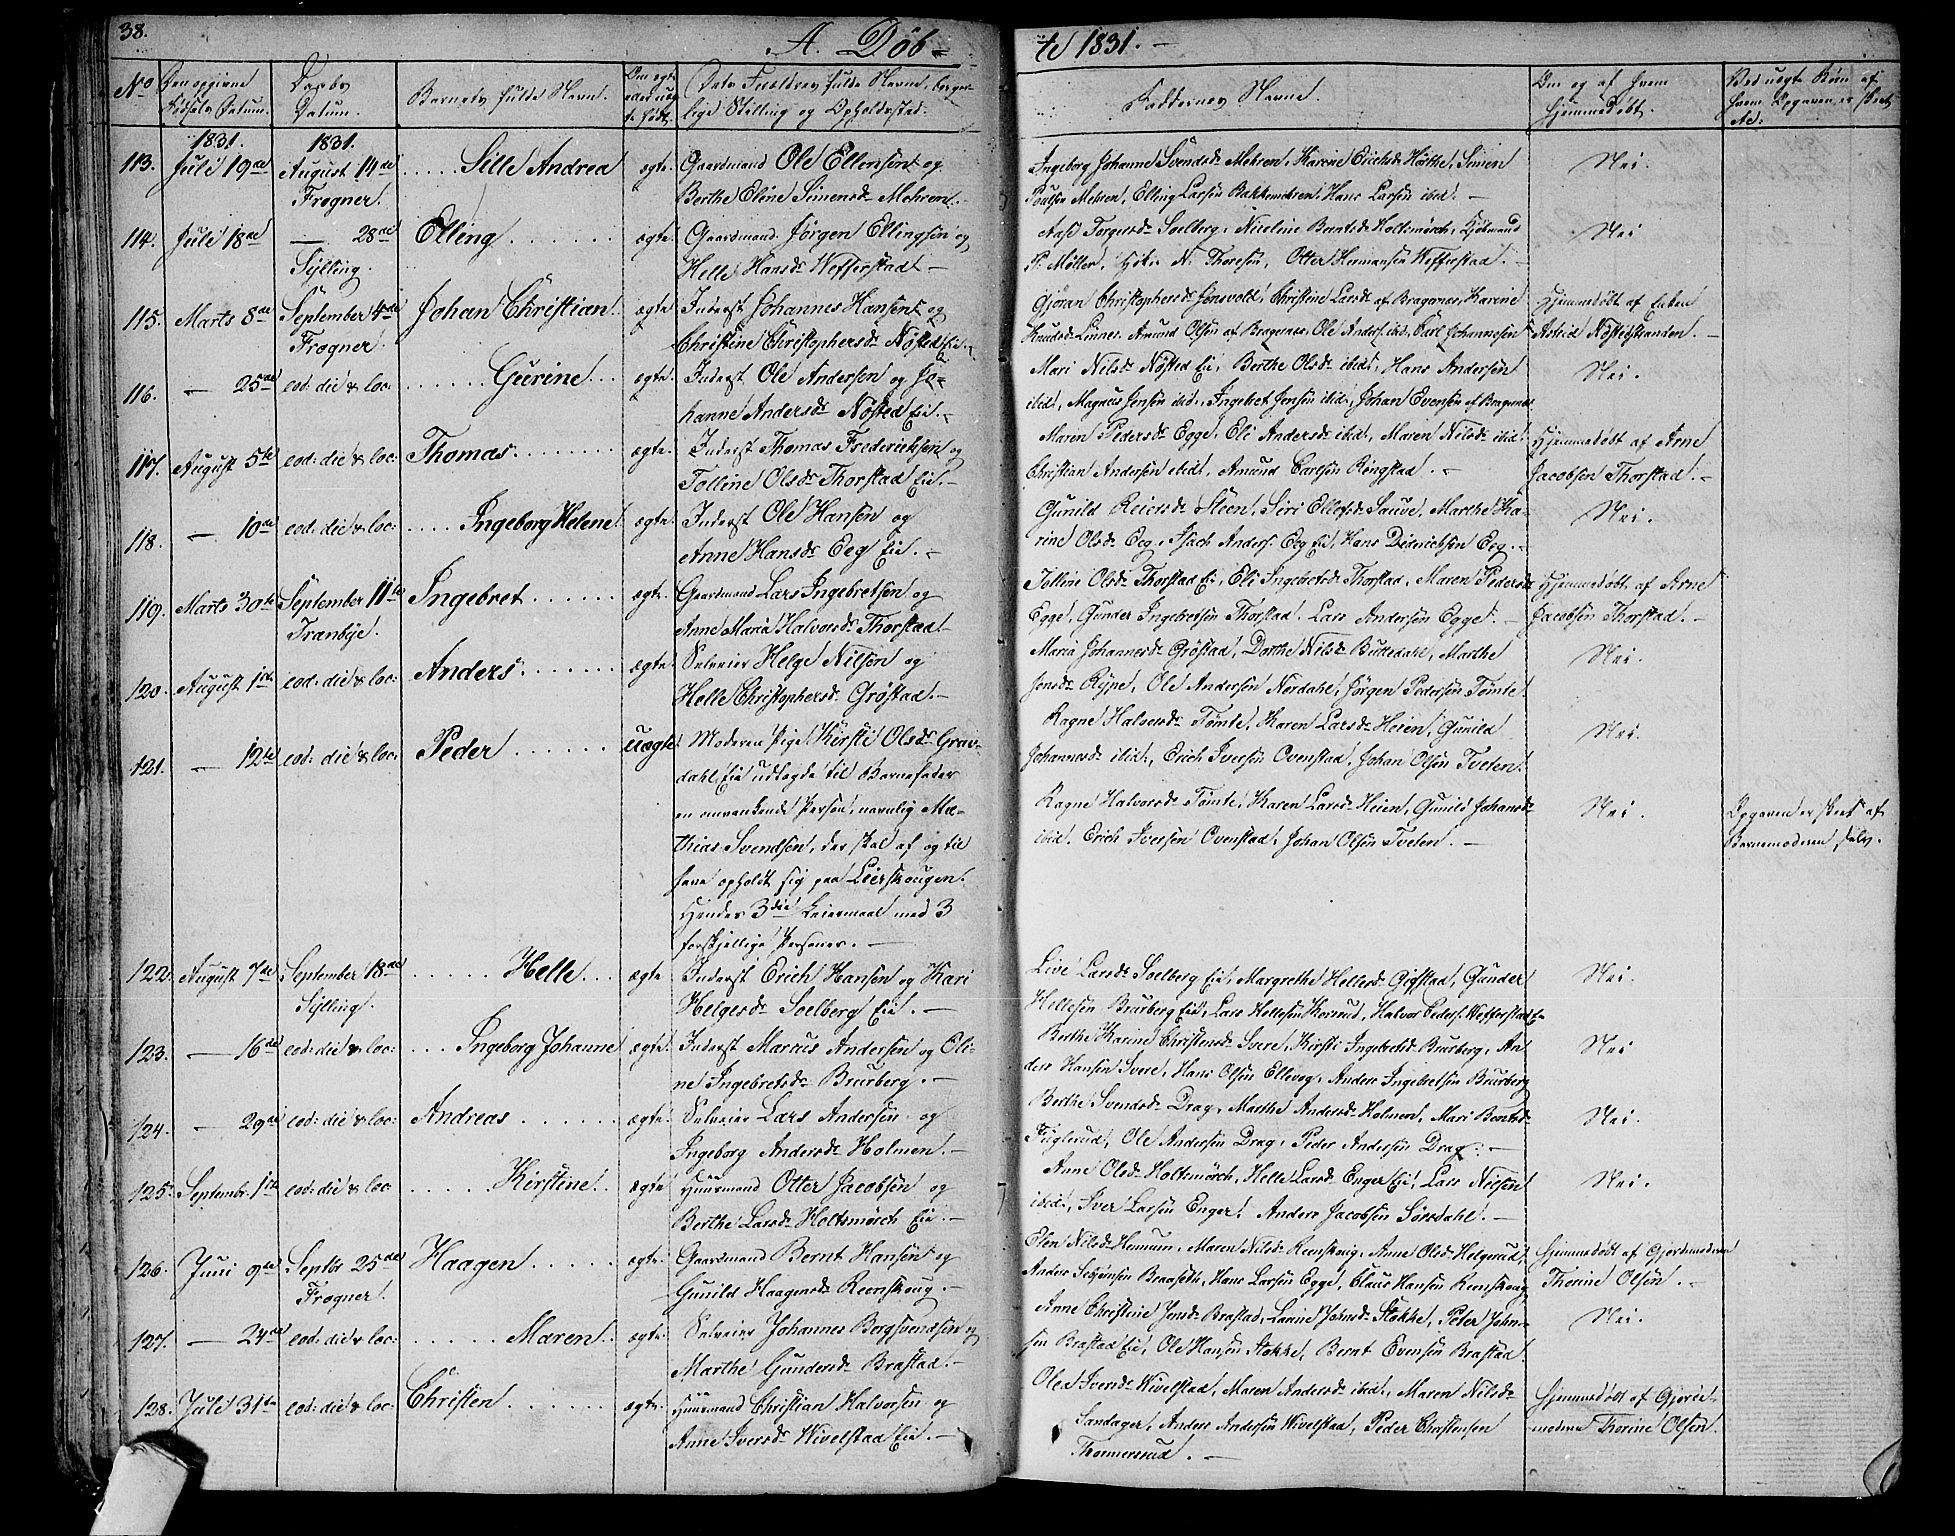 38.
A. Døb-
te 1831.-
No
Den opgivne Fødsels Datum.
Daabs Datum.
Barnets fulde Navn.
Om ægte eller uægte født.
Dets Forældres fulde Navne, borgerlige Stilling og Opholdssted.
Faddernes Navne.
Om og af hvem hjemmedøbt.
Ved uægte Børn af hvem Opgaven er skeet
1831. 1831.
113. Juli 19de August 14de Frogner. Sille Andrea ægte
Gaardmand Ole Ellensen og
Berthe Eline Simensd. Mehren.-
Ingeborg Johanne Svendsd. Mehren, Karine Erichsd. Simen
Poulsen Mehren, Elling Larsen Bakkemehren, Hans Larsen ibid.-
Nei.
114. Juli 18de — 28de Sylling. Elling ægte.
Gaardmand Jørgen Ellingsen og
Helle Hansd. Wefferstad.-
Aase Torgersd. Solberg, Nicoline Berntsd. Holtsmörch, Kjöbmand
P. Möller, N. Thoresen, Otter Hermansen Wefferstad.-
Nei
115. Marts 8de September 4de Frogner. Johan Christian. ægte
Inderst Johannes Hansen og
Christine Christophersd. Nøsted Eie.-
Gjöran Christophersd. Christine Larsd. af Bragernes, Karine
Knudsd. Linnes. Amund Olsen af Bragernes, Ole Anders. ibid. Carl Johannesen
Hjemmedøbt af Enken
Astrid Nöstedstranden.-
116. — 25de eod: die & loc: Gurine ægte.
Inderst Ole Andersen og Jo-
hanne Andersd. Nøsted Eie.-
Mari Nilsd. Nøsted Eie, Berthe Olsd. ibid., Hans Andersen
ibid., Magnus Jensen ibid., Ingebret Jensen ibid., Johan Evensen af Bragernes
Nei.
117. August 5te eod: die & loc: Thomas. ægte.
Inderst Thomas Frederiksen og
Tolline Olsd. Thorstad Eie.-
Maren Pedersd. Egge, Eli Andersd. ibid., Maren Nilsd. ibid.
Christian Andersen ibid., Amund Carlsen Ringstad.-
Hjemmedøbt af Arne
Jacobsen Thorstad.-
118. — 10de eod: die & loc: Ingeborg Helene. ægte.
Inderst Ole Hansen og
Anne Hansd. Eeg Eie.-
Gunild Reiersd. Steen, Siri Ellefsd. Sauve, Marthe Ka-
rine Olsd. Eeg, Isach Anders. Eeg Eie, Hans Diderichsen Eeg.-
Nei.
119. Marts 30te September 11te Tranbye. Ingebret ægte.
Gaardmand Lars Ingebretsen og
Anne Maria Halvorsd. Thorstad.-
Tolline Olsd. Thorstad Eie, Eli Ingebretsd. Thorstad, Maren Pedersd.
Egge, Gunder Ingebretsen Thorstad. Lars Andersen Egge.-
Hjemmedøbt af Arne
Jacobsen Thorstad.-
120. August 1ste eod: die & loc: Anders. ægte
Selveier Helge Nilsen og
Helle Christophersd. Grøstad.-
Maria Johannesd. Gröstad, Dorthe Nilsd. Marthe
Jensd. Rype, Ole Andersen Nordahl, Jörgen Pedersen Tömte
Nei.
121. — 12te eod: die & loc: Peder uægte
Moderen Pige Kirsti Olsd. Grav-
dahl Eie udlagde til Barnefader
en omvankende Person, navnlig Ma-
thias Svendsen, der skal af og til
have opholdt sig paa Lierskougen.
Hendes 3die Leiermaal med 3
forskjellige Personer.-
Ragne Halvorsd. Tömte, Karen Larsd. Heien, Gunild
Johannesd. ibid., Erich Iversen Ovenstad, Johan Olsen Tveten.
Nei.
Ragne Halvorsd. Tömte, Karen Larsd. Heien, Gunild Johansd.
ibid. Erich Iversen Ovenstad, Johan Olsen Tveten.-
Nei.
Opgaven er skeet af
Barnemoderen selv.
122. August 7de September 18de Sylling. Helle ægte
Inderst Erich Hansen og Kari
Helgesd. Soelberg Eie.-
Live Larsd. Soelberg Eie, Margrethe Hellesd. Gunder
Hellesen Brurberg Eie, Lars Hellesen Korsrud, Halvor Peders. Wefferstad Eie
Nei.
123. — 16de eod: die & loc: Ingeborg Johanne ægte.
Inderst Marcus Andersen og Oli-
ne Ingebretsd. Brurberg.-
Berthe Karine Christensd. Svere, Kirsti Ingebretsd. Brurberg, An
ders Hansen Svere, Hans Olsen Ellevog, Anders Ingebretsen Brurberg
Nei
124. — 29de eod: die & loc: Andreas ægte.
Selveier Lars Andersen og
Ingeborg Andersd. Holmen.-
Berthe Svendsd. Drag, Marthe Andersd. Holmen, Mari Berntsd.
Fuglerud, Ole Andersen Drag, Peder Andersen Drag.-
Nei.
125. Septembr. 1ste eod: die & loc Kirstine ægte
Huusmand Otter Jacobsen og
Berthe Larsd. Holtsmørch Eie.-
Anne Olsd. Holtsmörch, Helle Larsd. Enger Eie, Lars Nilsen
ibid., Iver Larsen Enger, Anders Jacobsen Sörsdahl.-
Nei.
126. Juni 9de Septbr 25de Frogner. Haagen ægte.
Gaardmand Bernt Hansen og
Gunild Haagensd. Reenskoug.-
Elen Nilsd. Hennum, Maren Nilsd. Reenskoug, Anne Olsd. Helgerud,
Anders Braaseth, Hans Larsen Egge, Claus Hansen Reenskoug
Hjemmedøbt af Gjordemoderen
Thorine Olsen.-
127. — 24de eod: die & loc: Maren. ægte.
Selveier Johannes Bergsvendsen og
Marthe Gundersd. Brastad.-
Anne Christine Jensd. Brastad, Johnsd. Stokke, Peder John-
sen Brastad Eie, Ole Hansen Stokke, Bernt Evensen Brastad.
Nei.
128. Juli 31te eod: die & loc: Christen ægte.
Huusmand Christian Halvorsen og
Anne Iversd. Wivelstad Eie.-
Olea Iversd. Wivelstad, Maren Andersd. ibid., Maren Nilsd.
Sandager, Anders Andersen Wivelstad, Peder Christensen
Thronnerrud.-
Hjemmedøbt af Gjorde-
moderen Thorine Olsen.